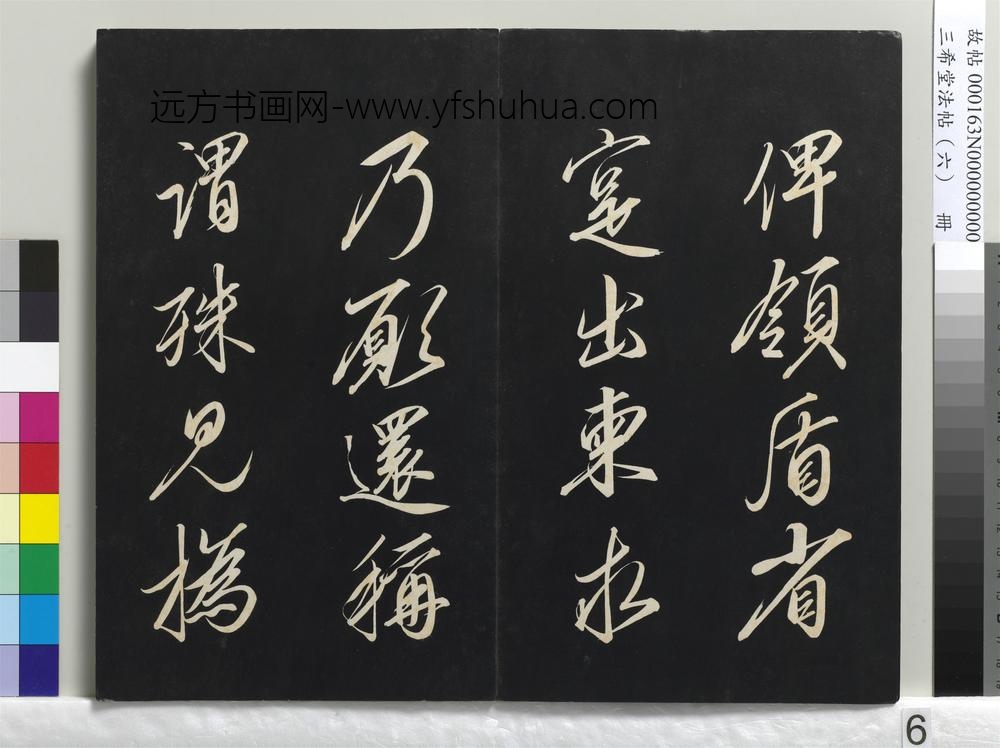 远方书画网-www.yfshuhua.com
俾領盾省
寔出柬求
乃願還稱
謂殊見撝
故帖 000163N000000000
三希堂法帖（六） 冊
6